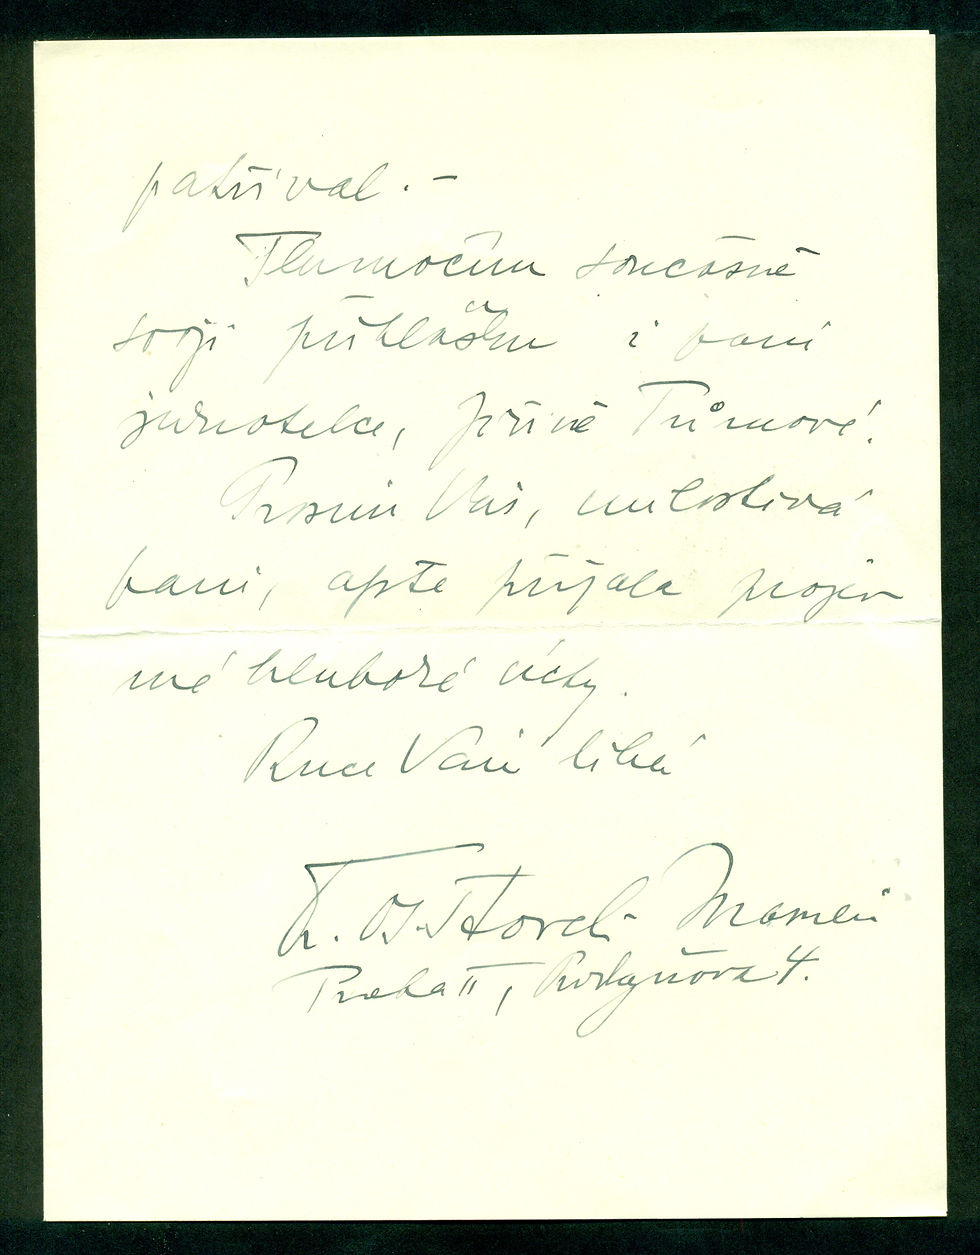 patříval. -
Tlumočím současně
svoji přihlášku i paní
jednatelce, Jiřině Tůmové.
Prosím Vás, milostivá
paní, abyste přijala projev
mé hluboké úcty.
Ruce Vám líbá
K. B. Storch-Marien
Praha II,